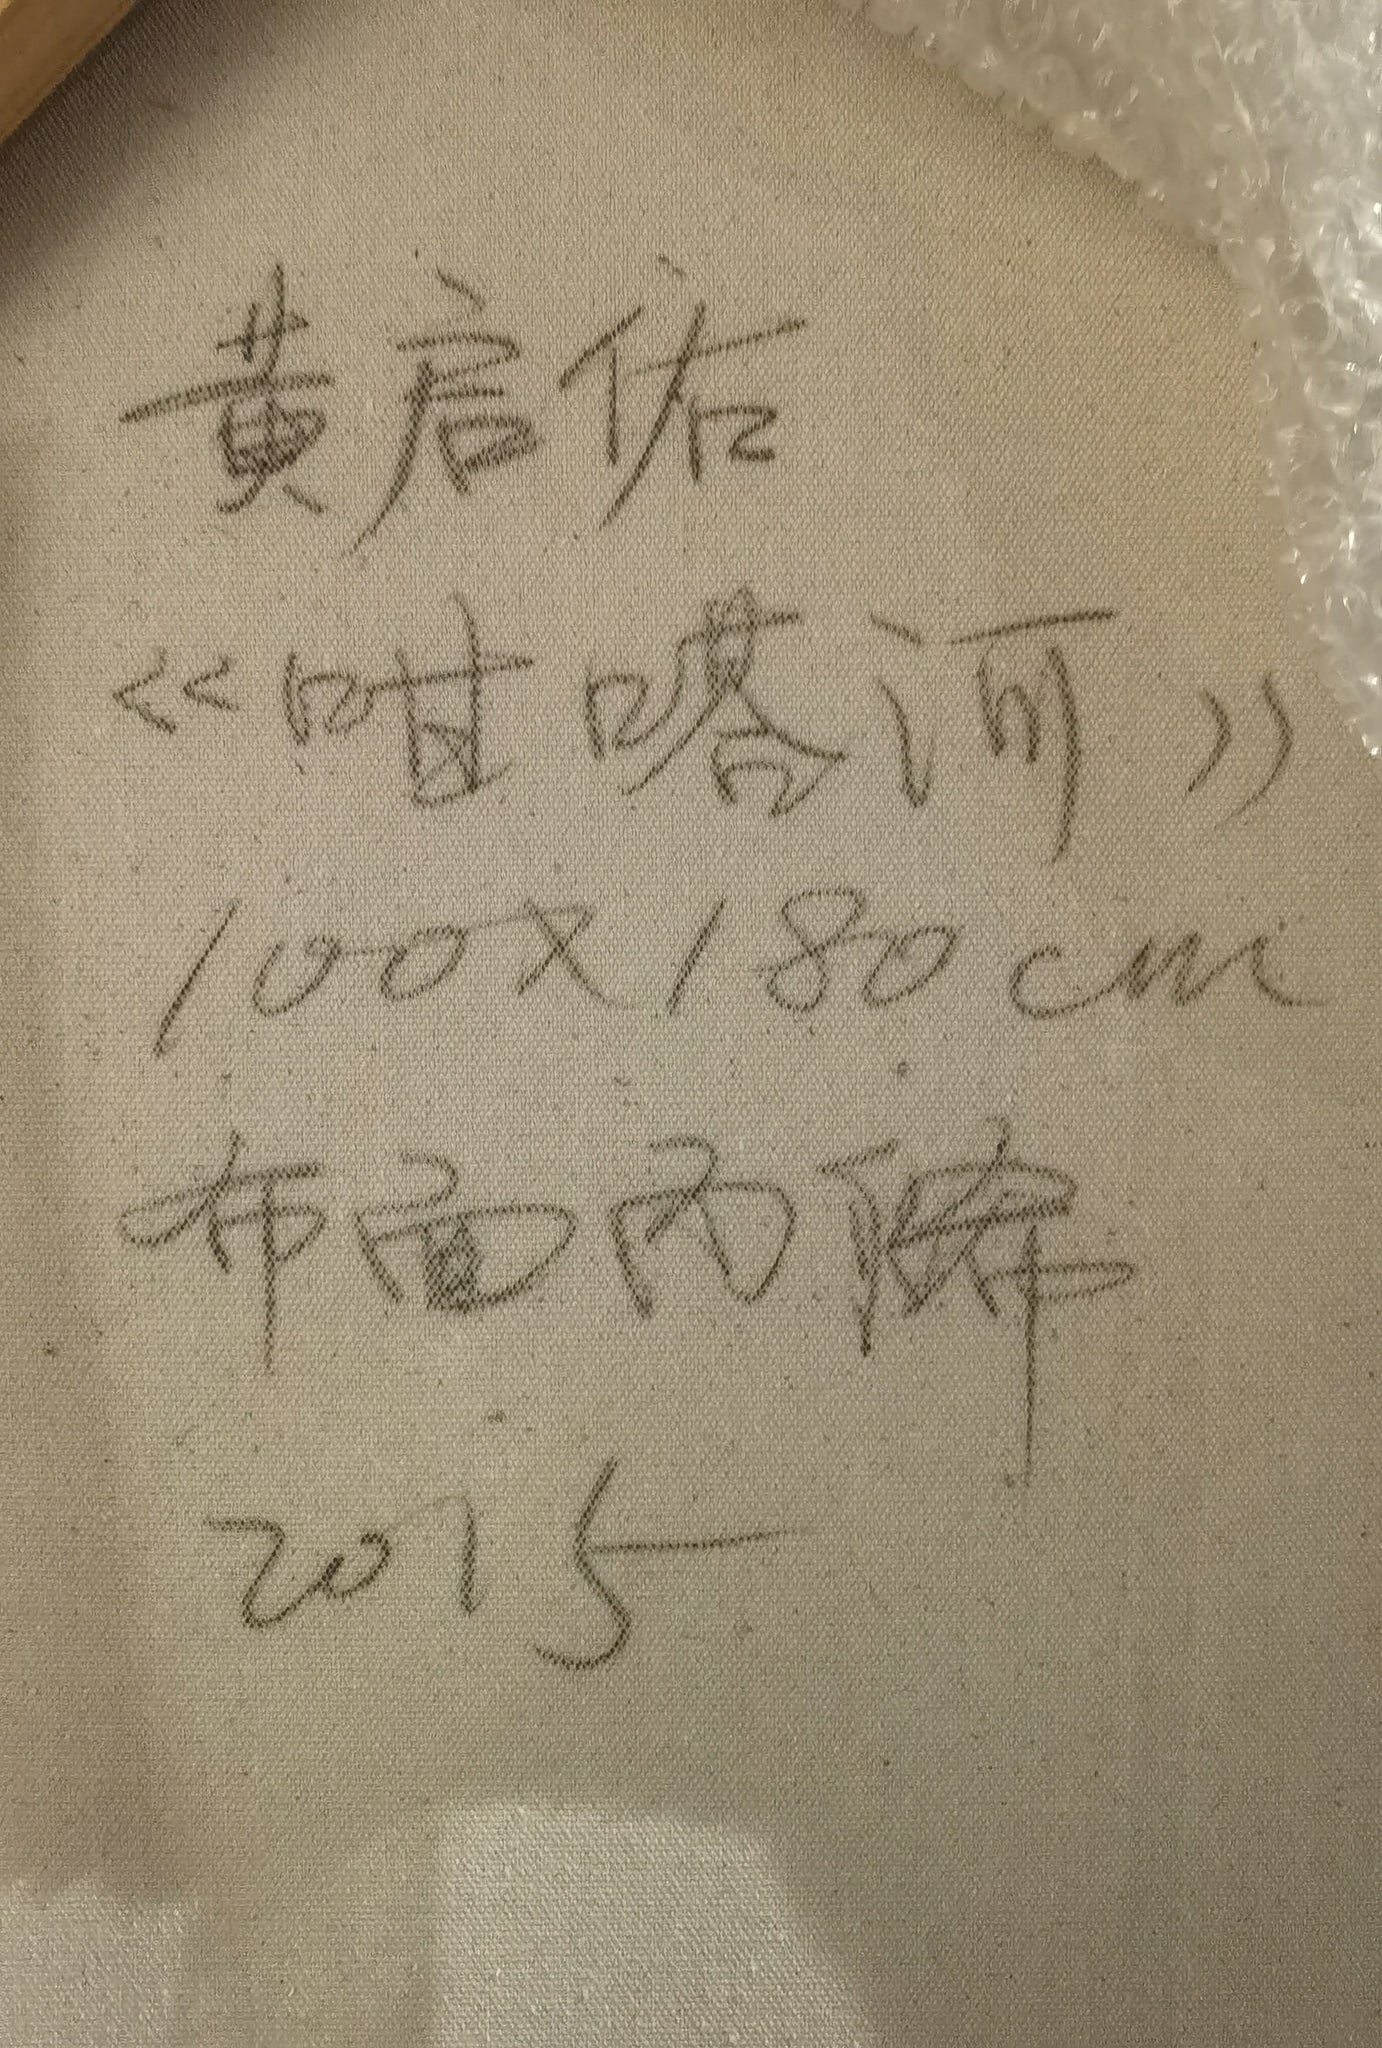 黄启佑
《咁嗒河》
100X180cm
布面丙烯
2015